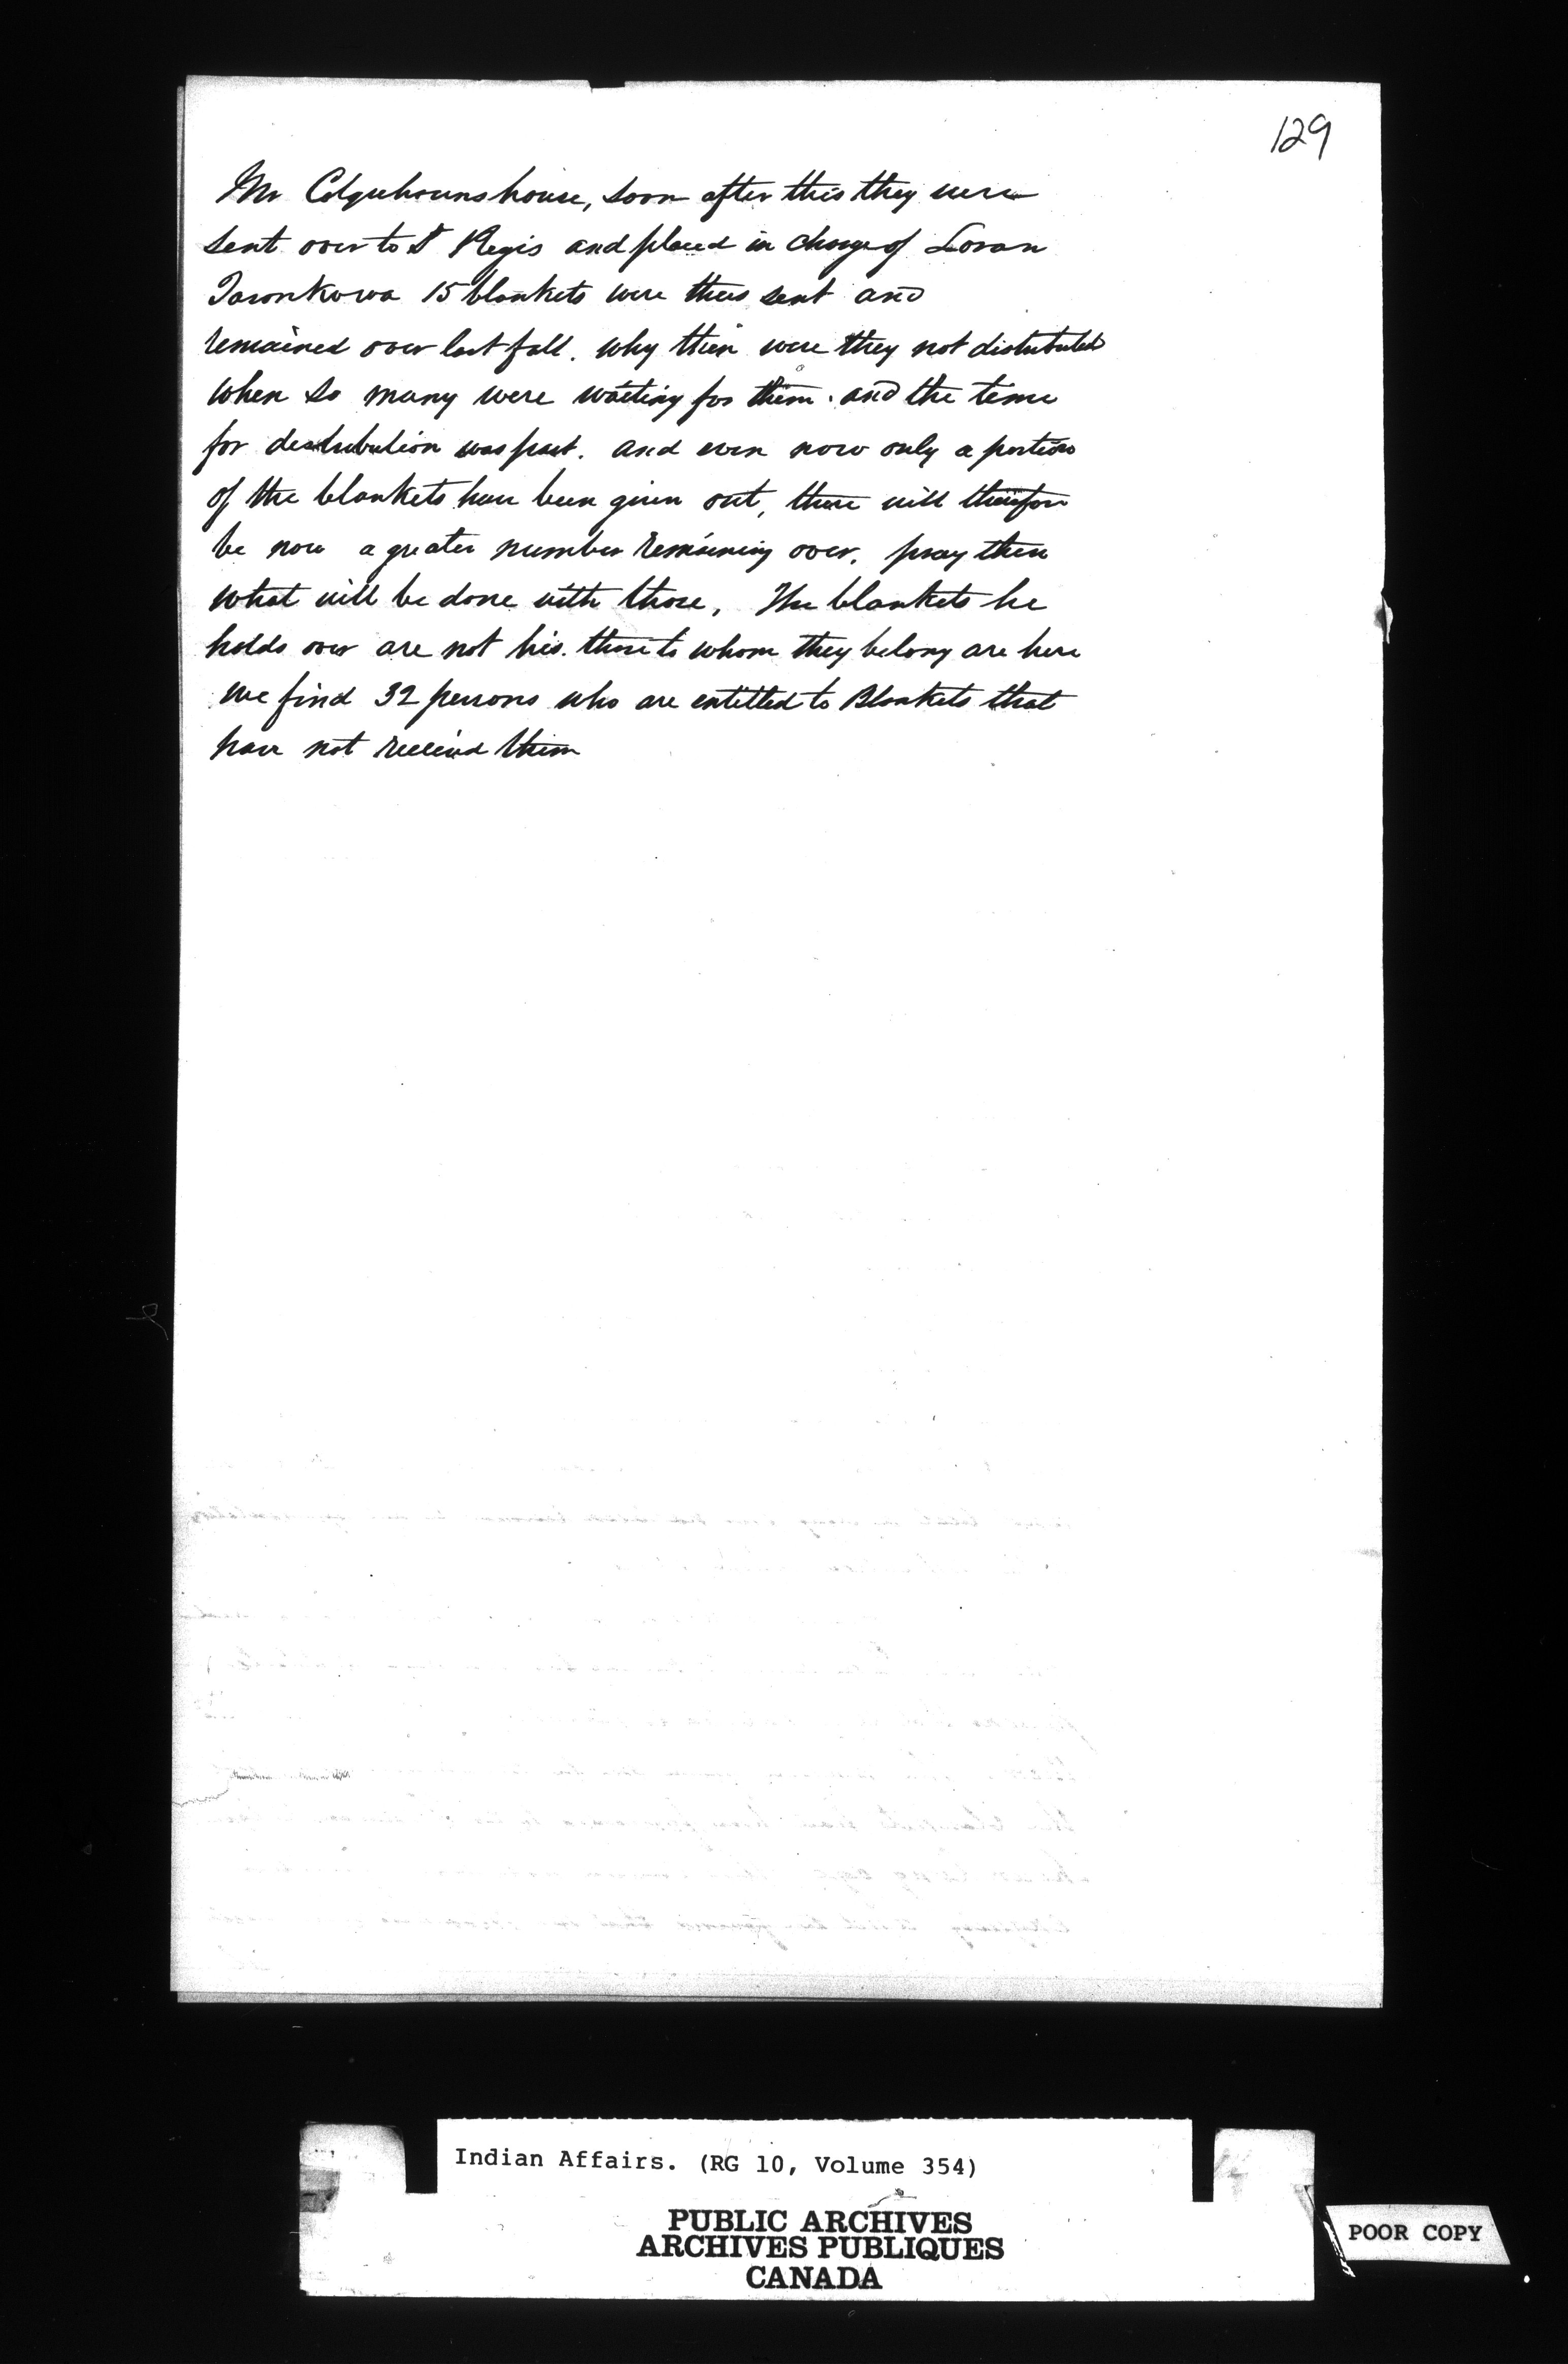 129
Mr Colquhouns house, soon after this they were
sent over to St Regis and placed in charge of Loran
Taronkowa 15 blankets were thus sent and
remained over last fall. why then were they not distributed
when so many were waiting for them. and the time
for distribution was past. and even now only a portion
of the blankets have been given out, there will therefore
be now a greater number remaining over. pray then
what will be done with those, The blankets he
holds over are not his. those to whom they belong are here
we find 32 persons who are entitled to Blankets that
have not received them
Indian Affairs. (RG 10, Volume 354)
PUBLIC ARCHIVES
ARCHIVES PUBLIQUES
CANADA
POOR COPY